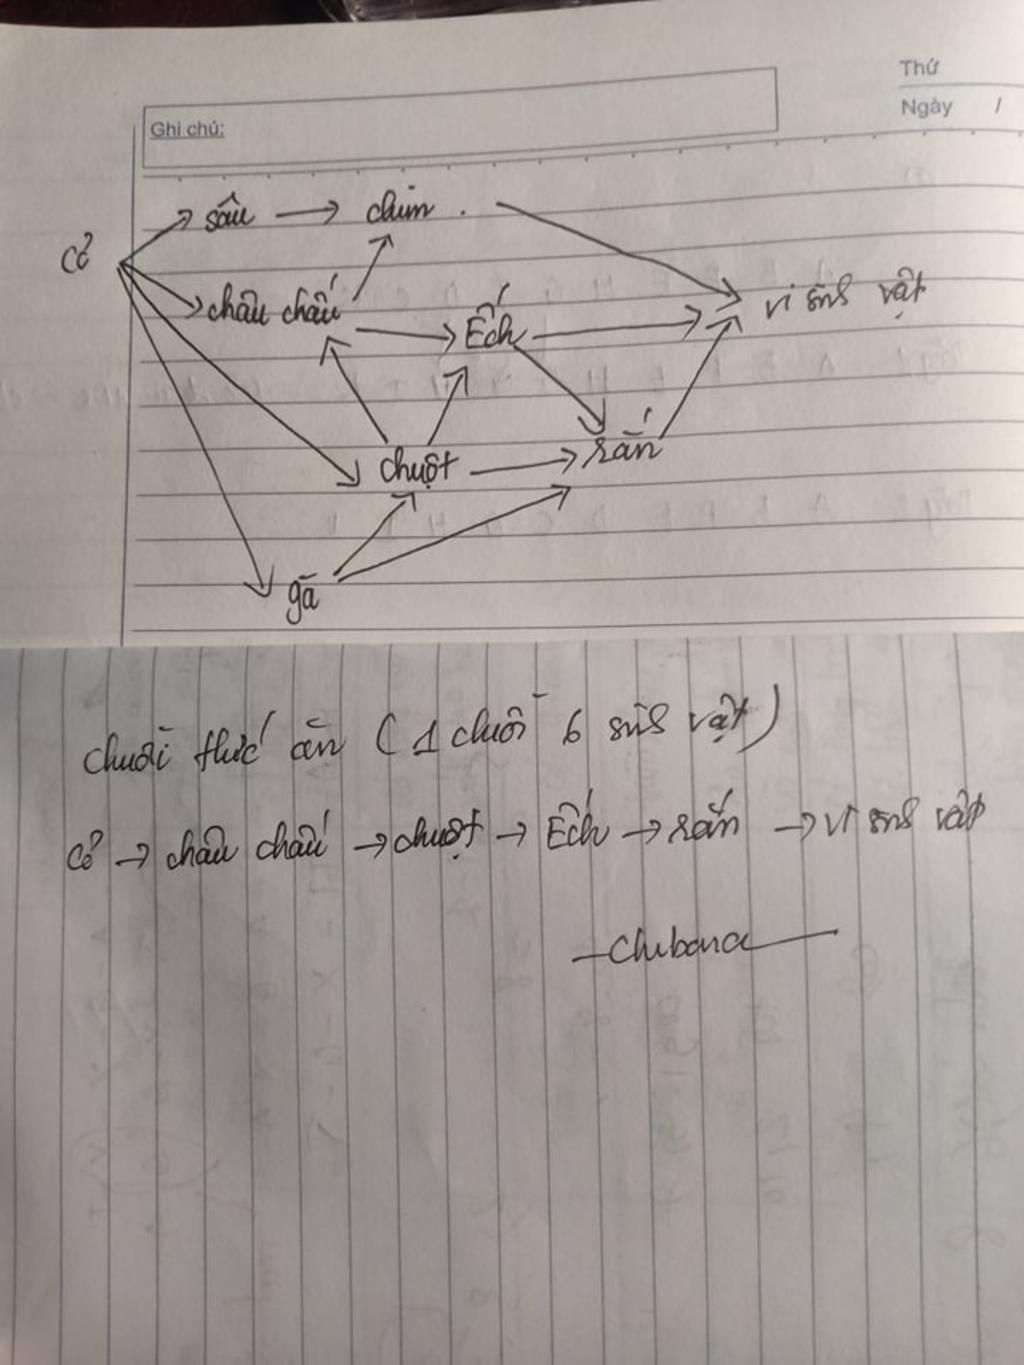 Thứ
Ngày /
Ghi chú:
sâu → chim .
cỏ
châu chấu → Ếch → vi sinh vật
chuột → rắn
gà
chuỗi thức ăn ( 1 chuỗi 6 sinh vật )
cỏ → châu chấu → chuột → Ếch → rắn → vi sinh vật
Chibana